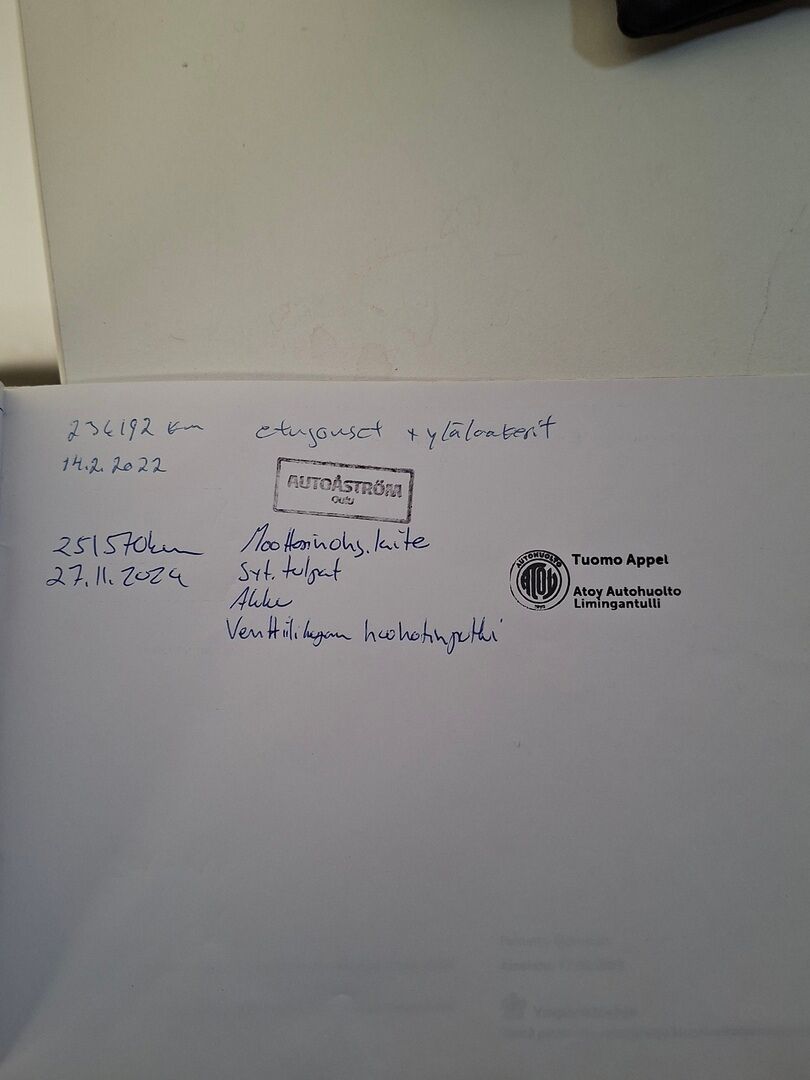 234192 km etujouset + ylälaakerit
14.2.2022
AUTOÅSTRÖM
Oulu
251570km Moottorinohj.laite
27.11.2024 Syt. tulpat
Akku
Venttiilikopan huohotinputki
AUTOHUOLTO
ATOY
Tuomo Appel
Atoy Autohuolto
Limingantulli